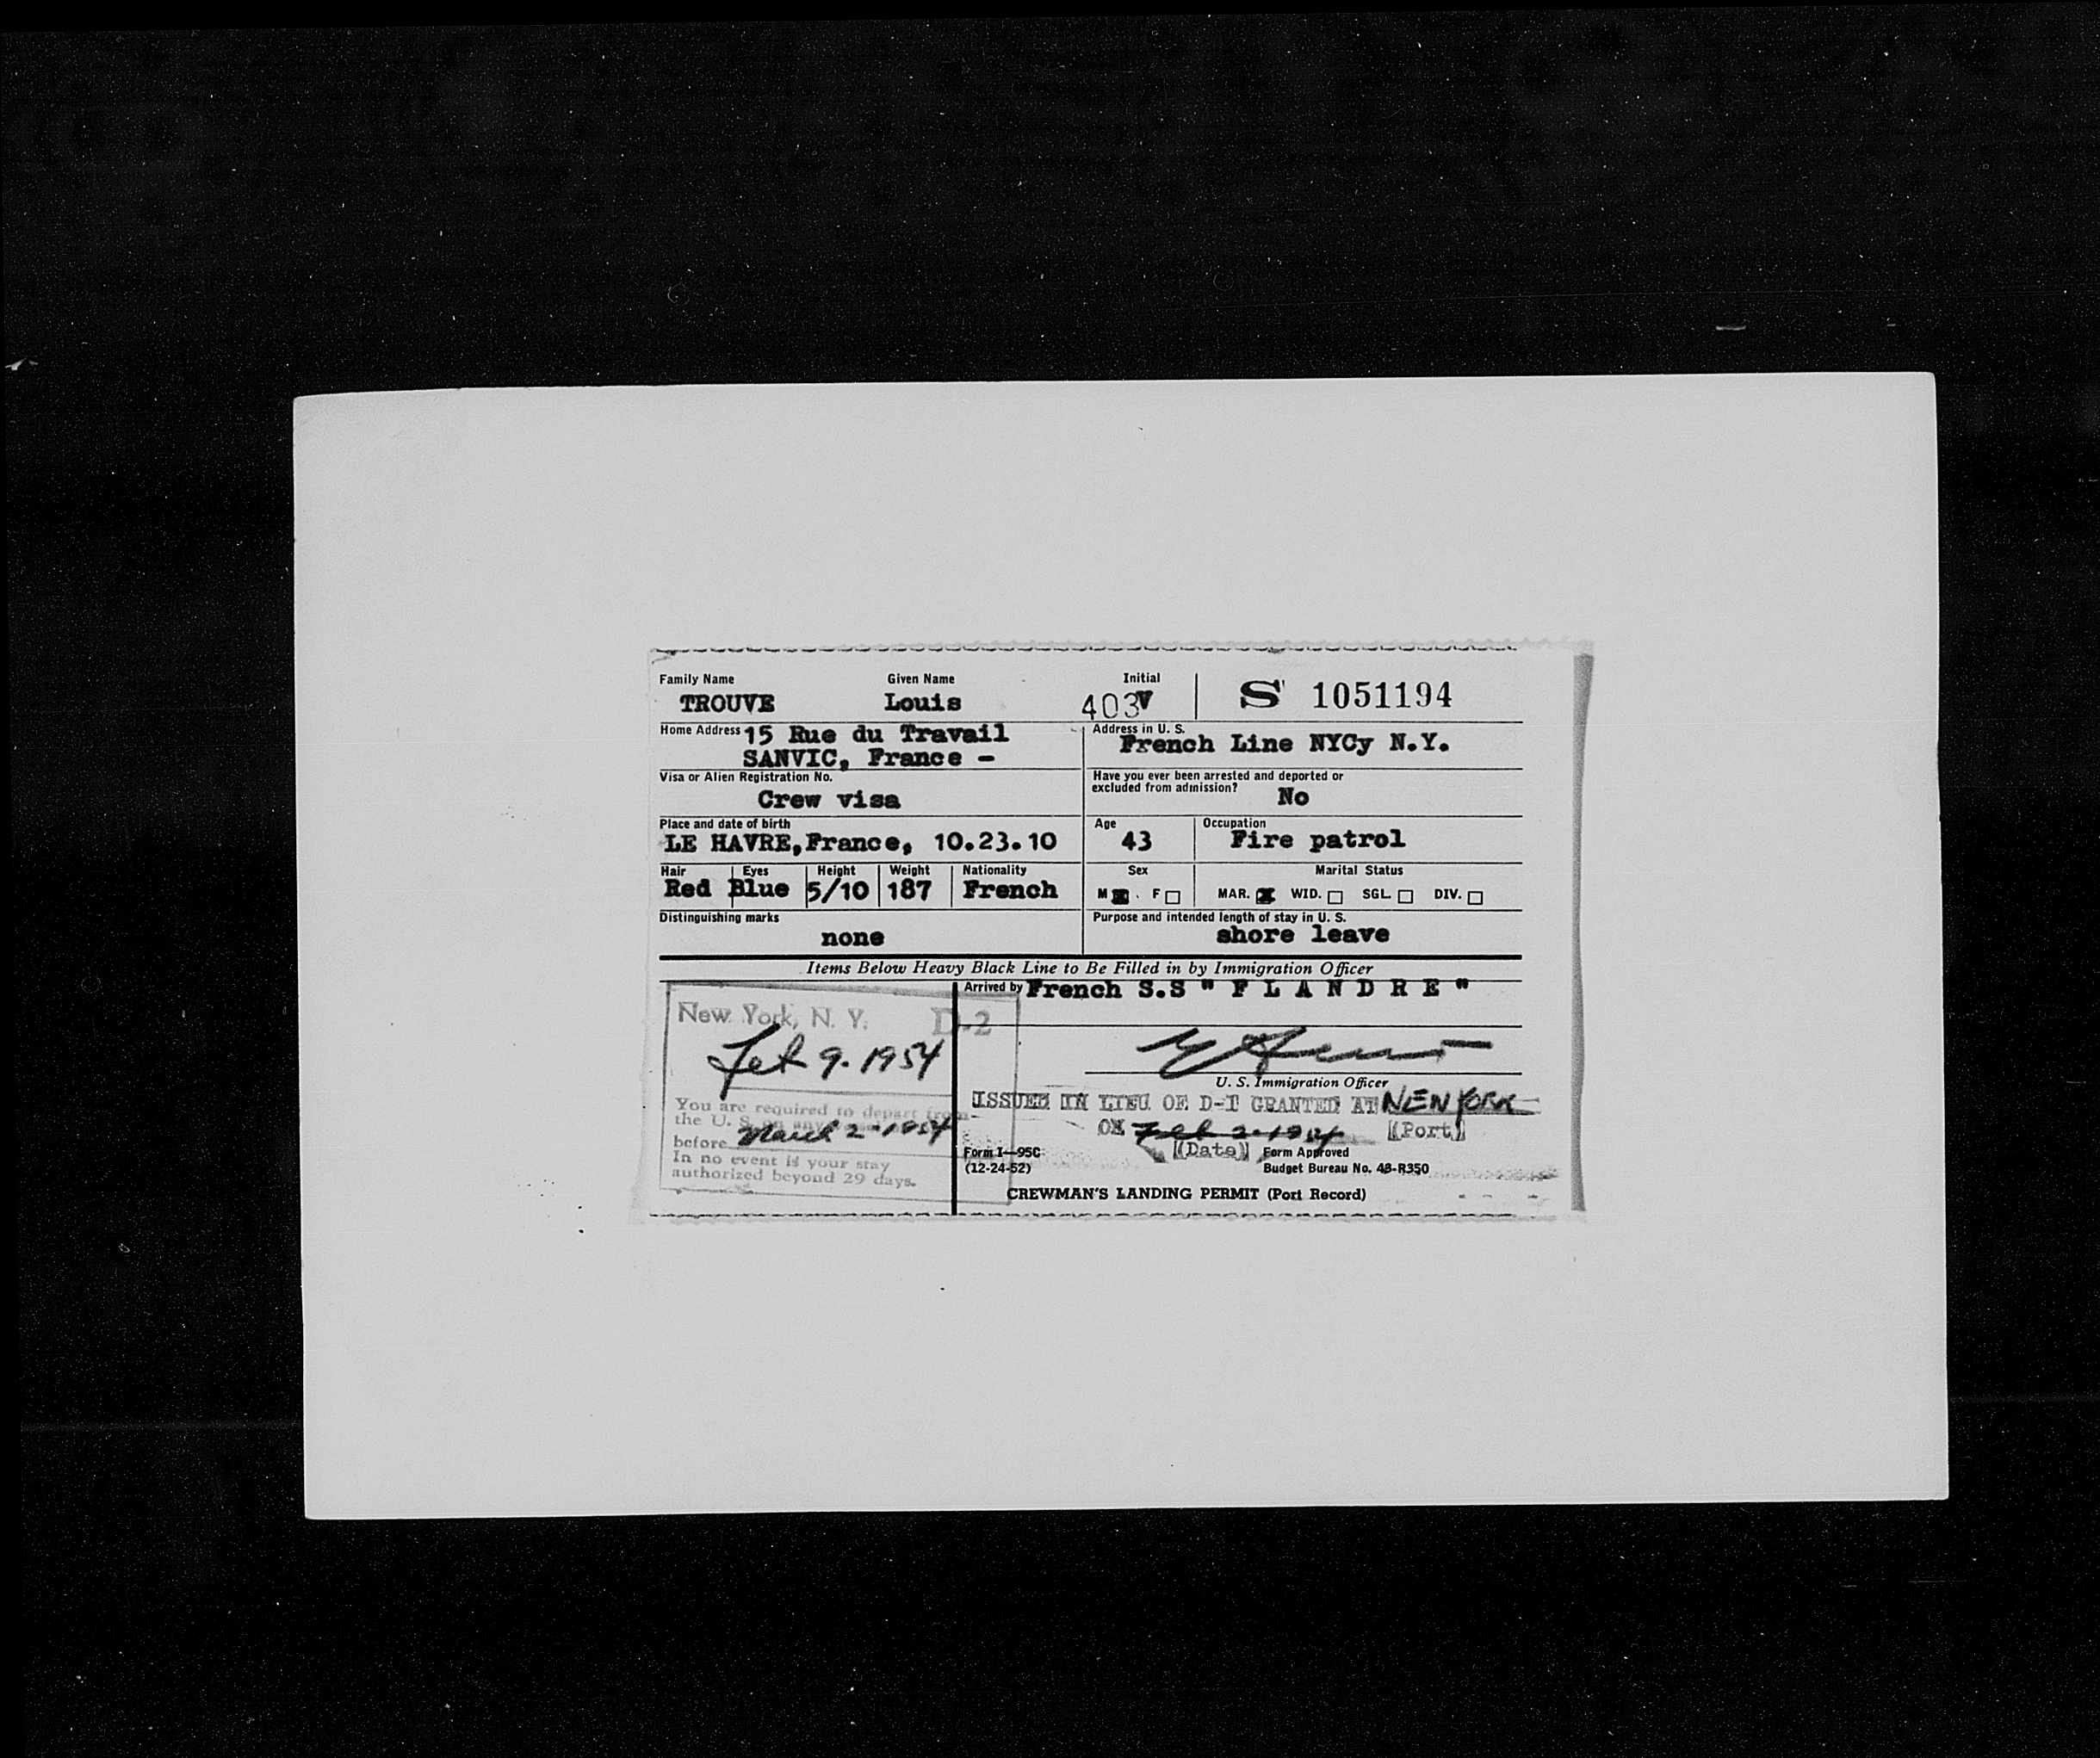 Family Name Given Name Initial
TROUVE Louis 403V S 1051194
Home Address 15 Rue du Travail
SANVIC, France -
Address in U. S.
French Line NYCy N.Y.
Visa or Alien Registration No.
Crew visa
Have you ever been arrested and deported or
excluded from admission? No
Place and date of birth
LE HAVRE, France, 10.23.10
Age Occupation
43 Fire patrol
Hair Eyes Height Weight Nationality
Red Blue 5/10 187 French
Sex Marital Status
M F MAR. WID. SGL. DIV.
Distinguishing marks
none
Purpose and intended length of stay in U. S.
shore leave
Items Below Heavy Black Line to Be Filled in by Immigration Officer
New York, N. Y. D-2
Feb 9. 1954
You are required to depart from
the U. S. on any
before March 2 - 1954
In no event is your stay
authorized beyond 29 days.
Arrived by French S.S " F L A N D R E "
U. S. Immigration Officer
ISSUED IN LIEU OF D-1 GRANTED AT NEW YORK
ON Feb 2. 1954 (Port)
(Date)
Form I—95C
(12-24-52)
Form Approved
Budget Bureau No. 43-R350
CREWMAN'S LANDING PERMIT (Port Record)